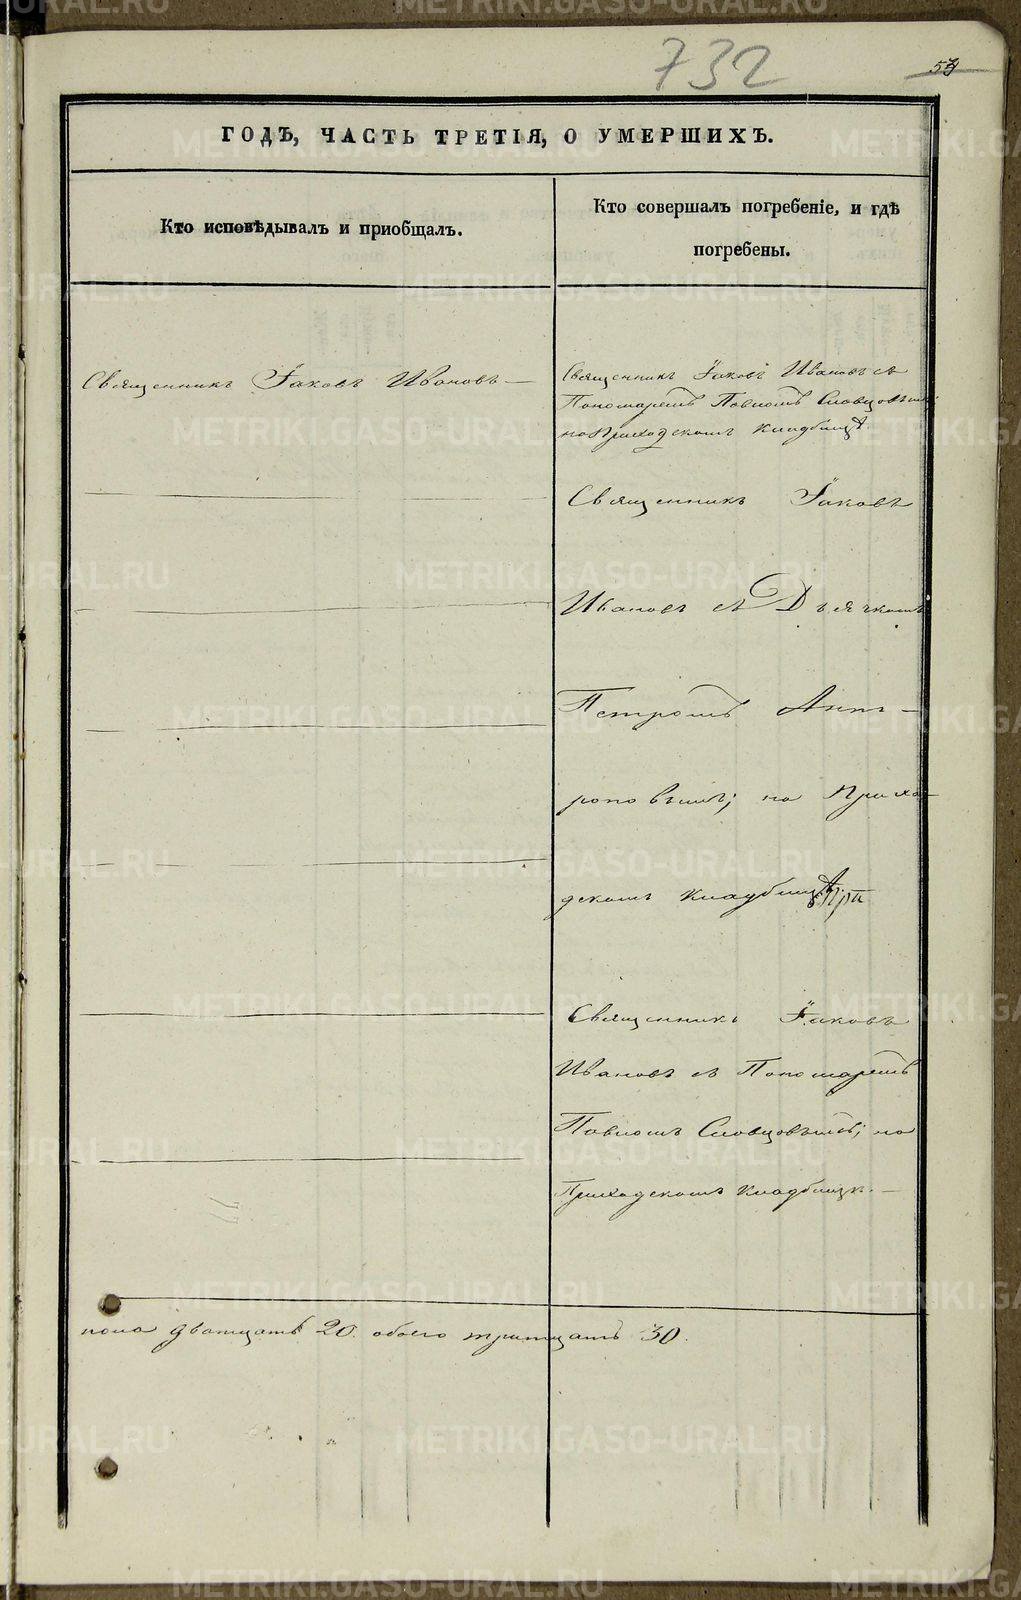 732
ГОДЪ, ЧАСТЬ ТРЕТІЯ, О УМЕРШИХЪ.
Кто исповѣдывалъ и пріобщалъ.
Кто совершалъ погребеніе, и гдѣ
погребены.
Священникъ Іаковъ Ивановъ —
Священникъ Іаковъ Ивановъ съ
Пономаремъ Павломъ Словцовымъ
на Приходскомъ кладбищѣ.
Священникъ Іаковъ
Ивановъ съ Дьячкомъ
Петромъ
на Прихо-
дскомъ кладбищѣ
Священникъ Іаковъ
Ивановъ съ Пономаремъ
Павломъ Словцовымъ; на
Приходскомъ кладбищѣ. —
пола дватцать 20. обоего тритцать 30.
METRIKI.GASO-URAL.RU